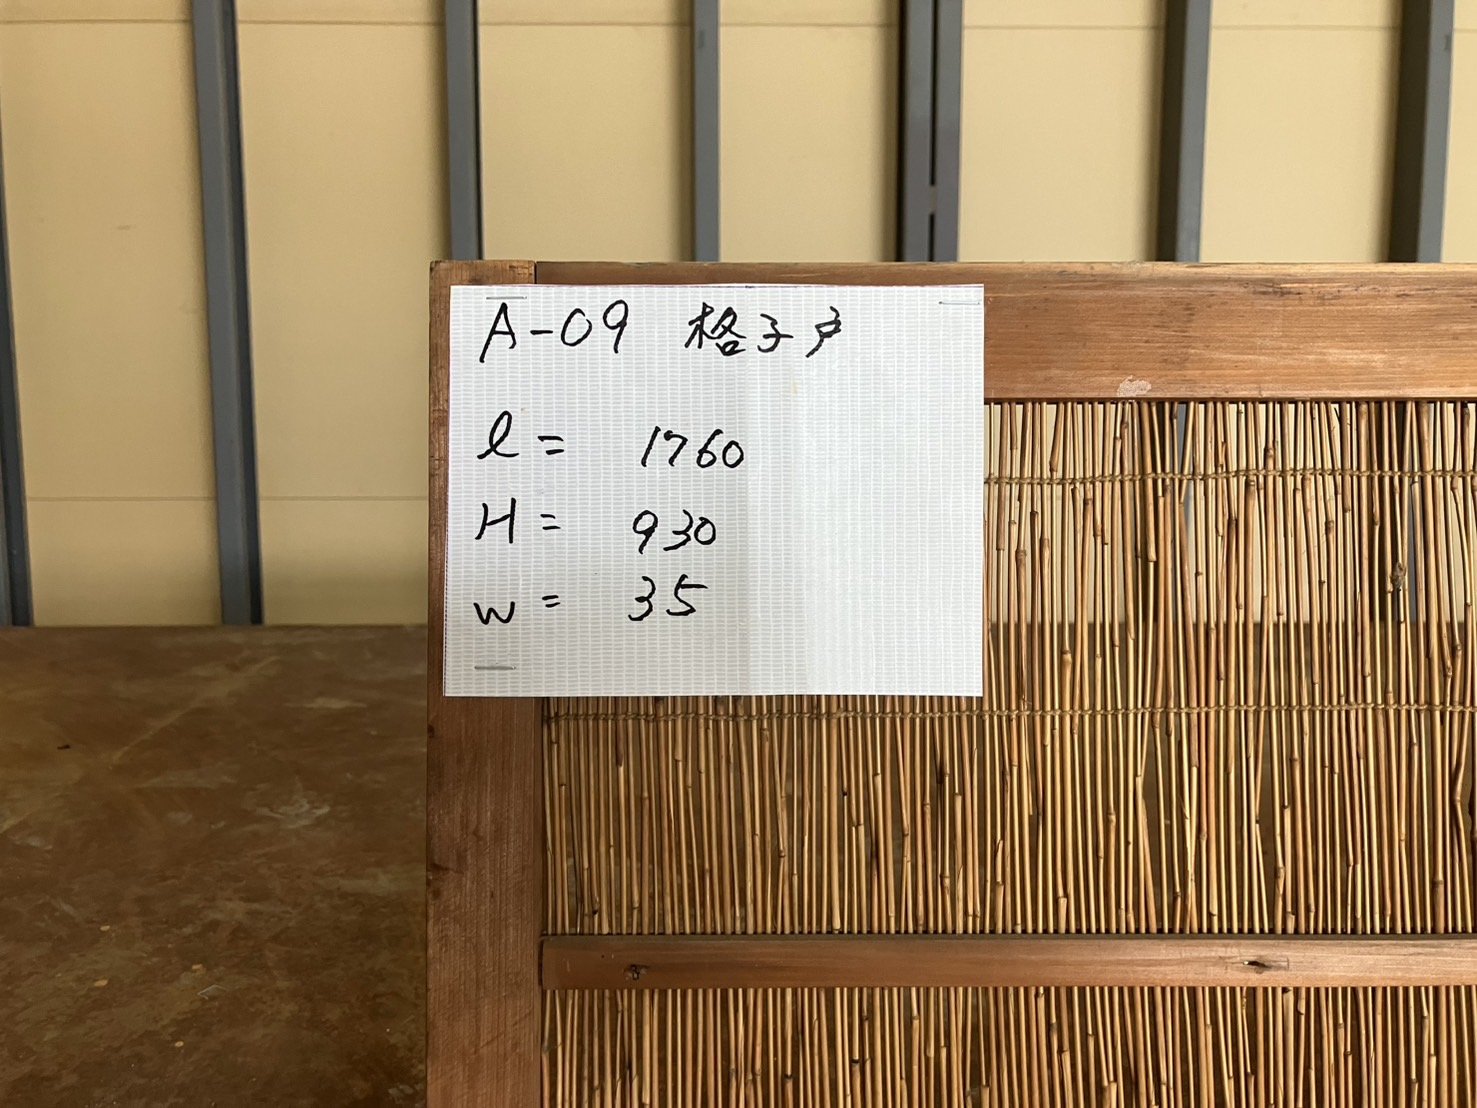 A-09 格子戸
l = 1760
H = 930
W = 35